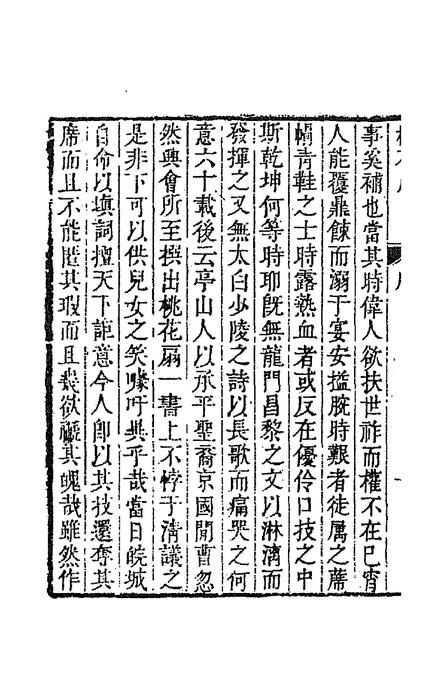 事奚補也當其時偉人欲扶世祚而權不在己宵
人能覆鼎餗而溺于宴安搤腕時艱者徒屬之蓆
帽青鞋之士時露熱血者或反在優伶口技之中
斯乾坤何等時耶既無龍門昌黎之文以淋漓而
發揮之又無太白少陵之詩以長歌而痛哭之何
意六十載後云亭山人以承平聖裔京國閒曹忽
然興會所至撰出桃花扇一書上不悖于清議之
是非下可以供兒女之笑噱吁其乎哉當日皖城
自命以填詞擅天下詎意今人卽以其技還奪其
席而且不能匿其瑕而且幾欲褫其魄哉雖然作